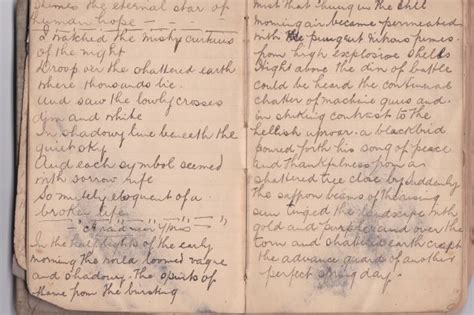 shines the eternal star of
human hope
I watched the misty curtains
of the night
Droop over the shattered earth
where thousands lie.
And saw the lowly crosses
dim and white
In shadowy line beneath the
quiet sky
And each symbol seemed
with sorrow rife
So mutely eloquent of a
broken life
In the half lights of the early
morning the world loomed vague
and shadowy. The spirits of
flame from the bursting
mist that hung in the still
morning air became permeated
with the pungent nitrous fumes
from high explosive shells
Right above the din of battle
could be heard the continual
chatter of machine guns and
in striking contrast to the
hellish uproar. a blackbird
poured forth his song of peace
and thankfulness from a
shattered tree close by. Suddenly
the saffron beams of the rising
sun tinged the landscape with
gold and purple and over the
torn and shattered earth crept
the advance guard of another
perfect spring day.